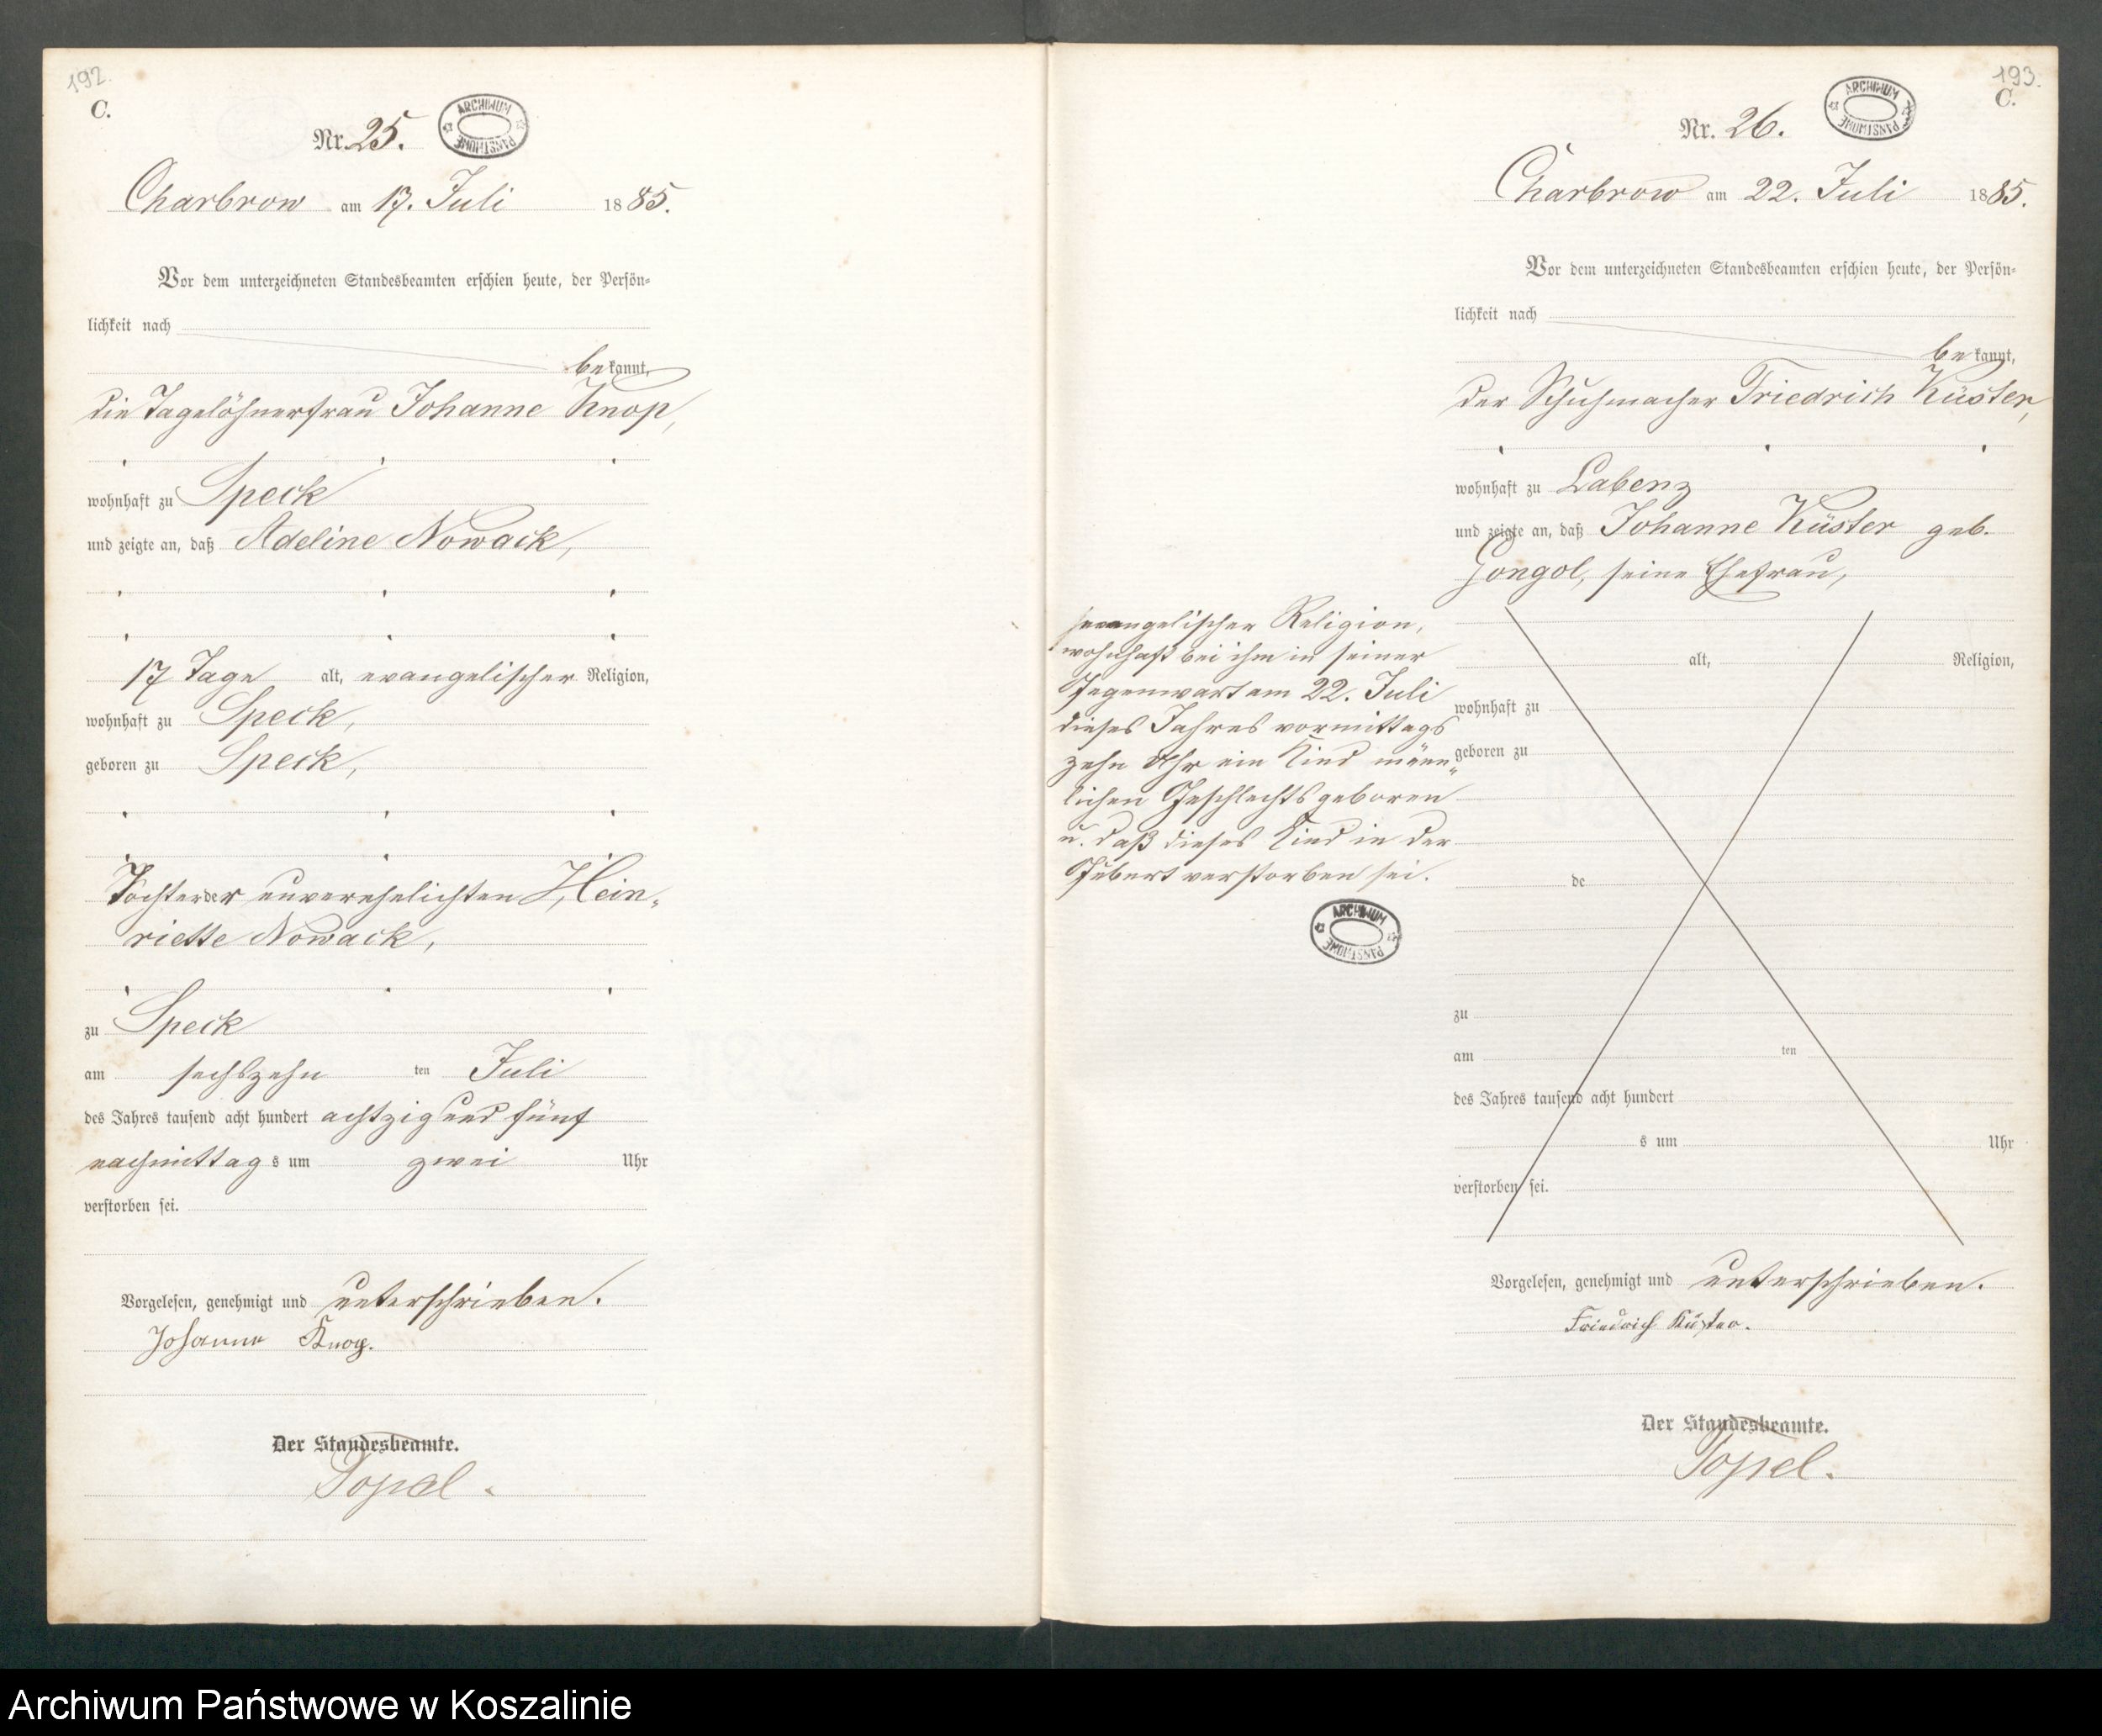 192.
C.
Nr. 25.
ARCHIWUM PAŃSTWOWE
Charbrow am 17. Juli 1885.
Vor dem unterzeichneten Standesbeamten erschien heute, der Persön-
lichkeit nach
bekannt,
die Tagelöhnerfrau Johanne Knop,
wohnhaft zu Speck
und zeigte an, daß Adeline Nowack,
17 Tage alt, evangelischer Religion,
wohnhaft zu Speck,
geboren zu Speck,
Tochter der unverehelichten Hein-
riette Nowack,
zu Speck
am sechszehn ten Juli
des Jahres tausend acht hundert achtzig und fünf
nachmittags um zwei Uhr
verstorben sei.
Vorgelesen, genehmigt und unterschrieben.
Johanne Knop.
Der Standesbeamte.
Popel.
193.
C.
Nr. 26.
ARCHIWUM PAŃSTWOWE
Charbrow am 22. Juli 1885.
Vor dem unterzeichneten Standesbeamten erschien heute, der Persön-
lichkeit nach
bekannt,
der Schuhmacher Friedrich Küster,
wohnhaft zu Labenz
und zeigte an, daß Johanne Küster geb.
Gongol, seine Ehefrau,
evangelischer Religion,
wohnhaft bei ihm in seiner
Gegenwart am 22. Juli
dieses Jahres vormittags
zehn Uhr ein Kind männ-
lichen Geschlechts geboren
u. daß dieses Kind in der
Geburt verstorben sei.
ARCHIWUM PAŃSTWOWE
alt, Religion,
wohnhaft zu
geboren zu
de
zu
am ten
des Jahres tausend acht hundert
s um Uhr
verstorben sei.
Vorgelesen, genehmigt und unterschrieben.
Friedrich Küster.
Der Standesbeamte.
Popel.
Archiwum Państwowe w Koszalinie